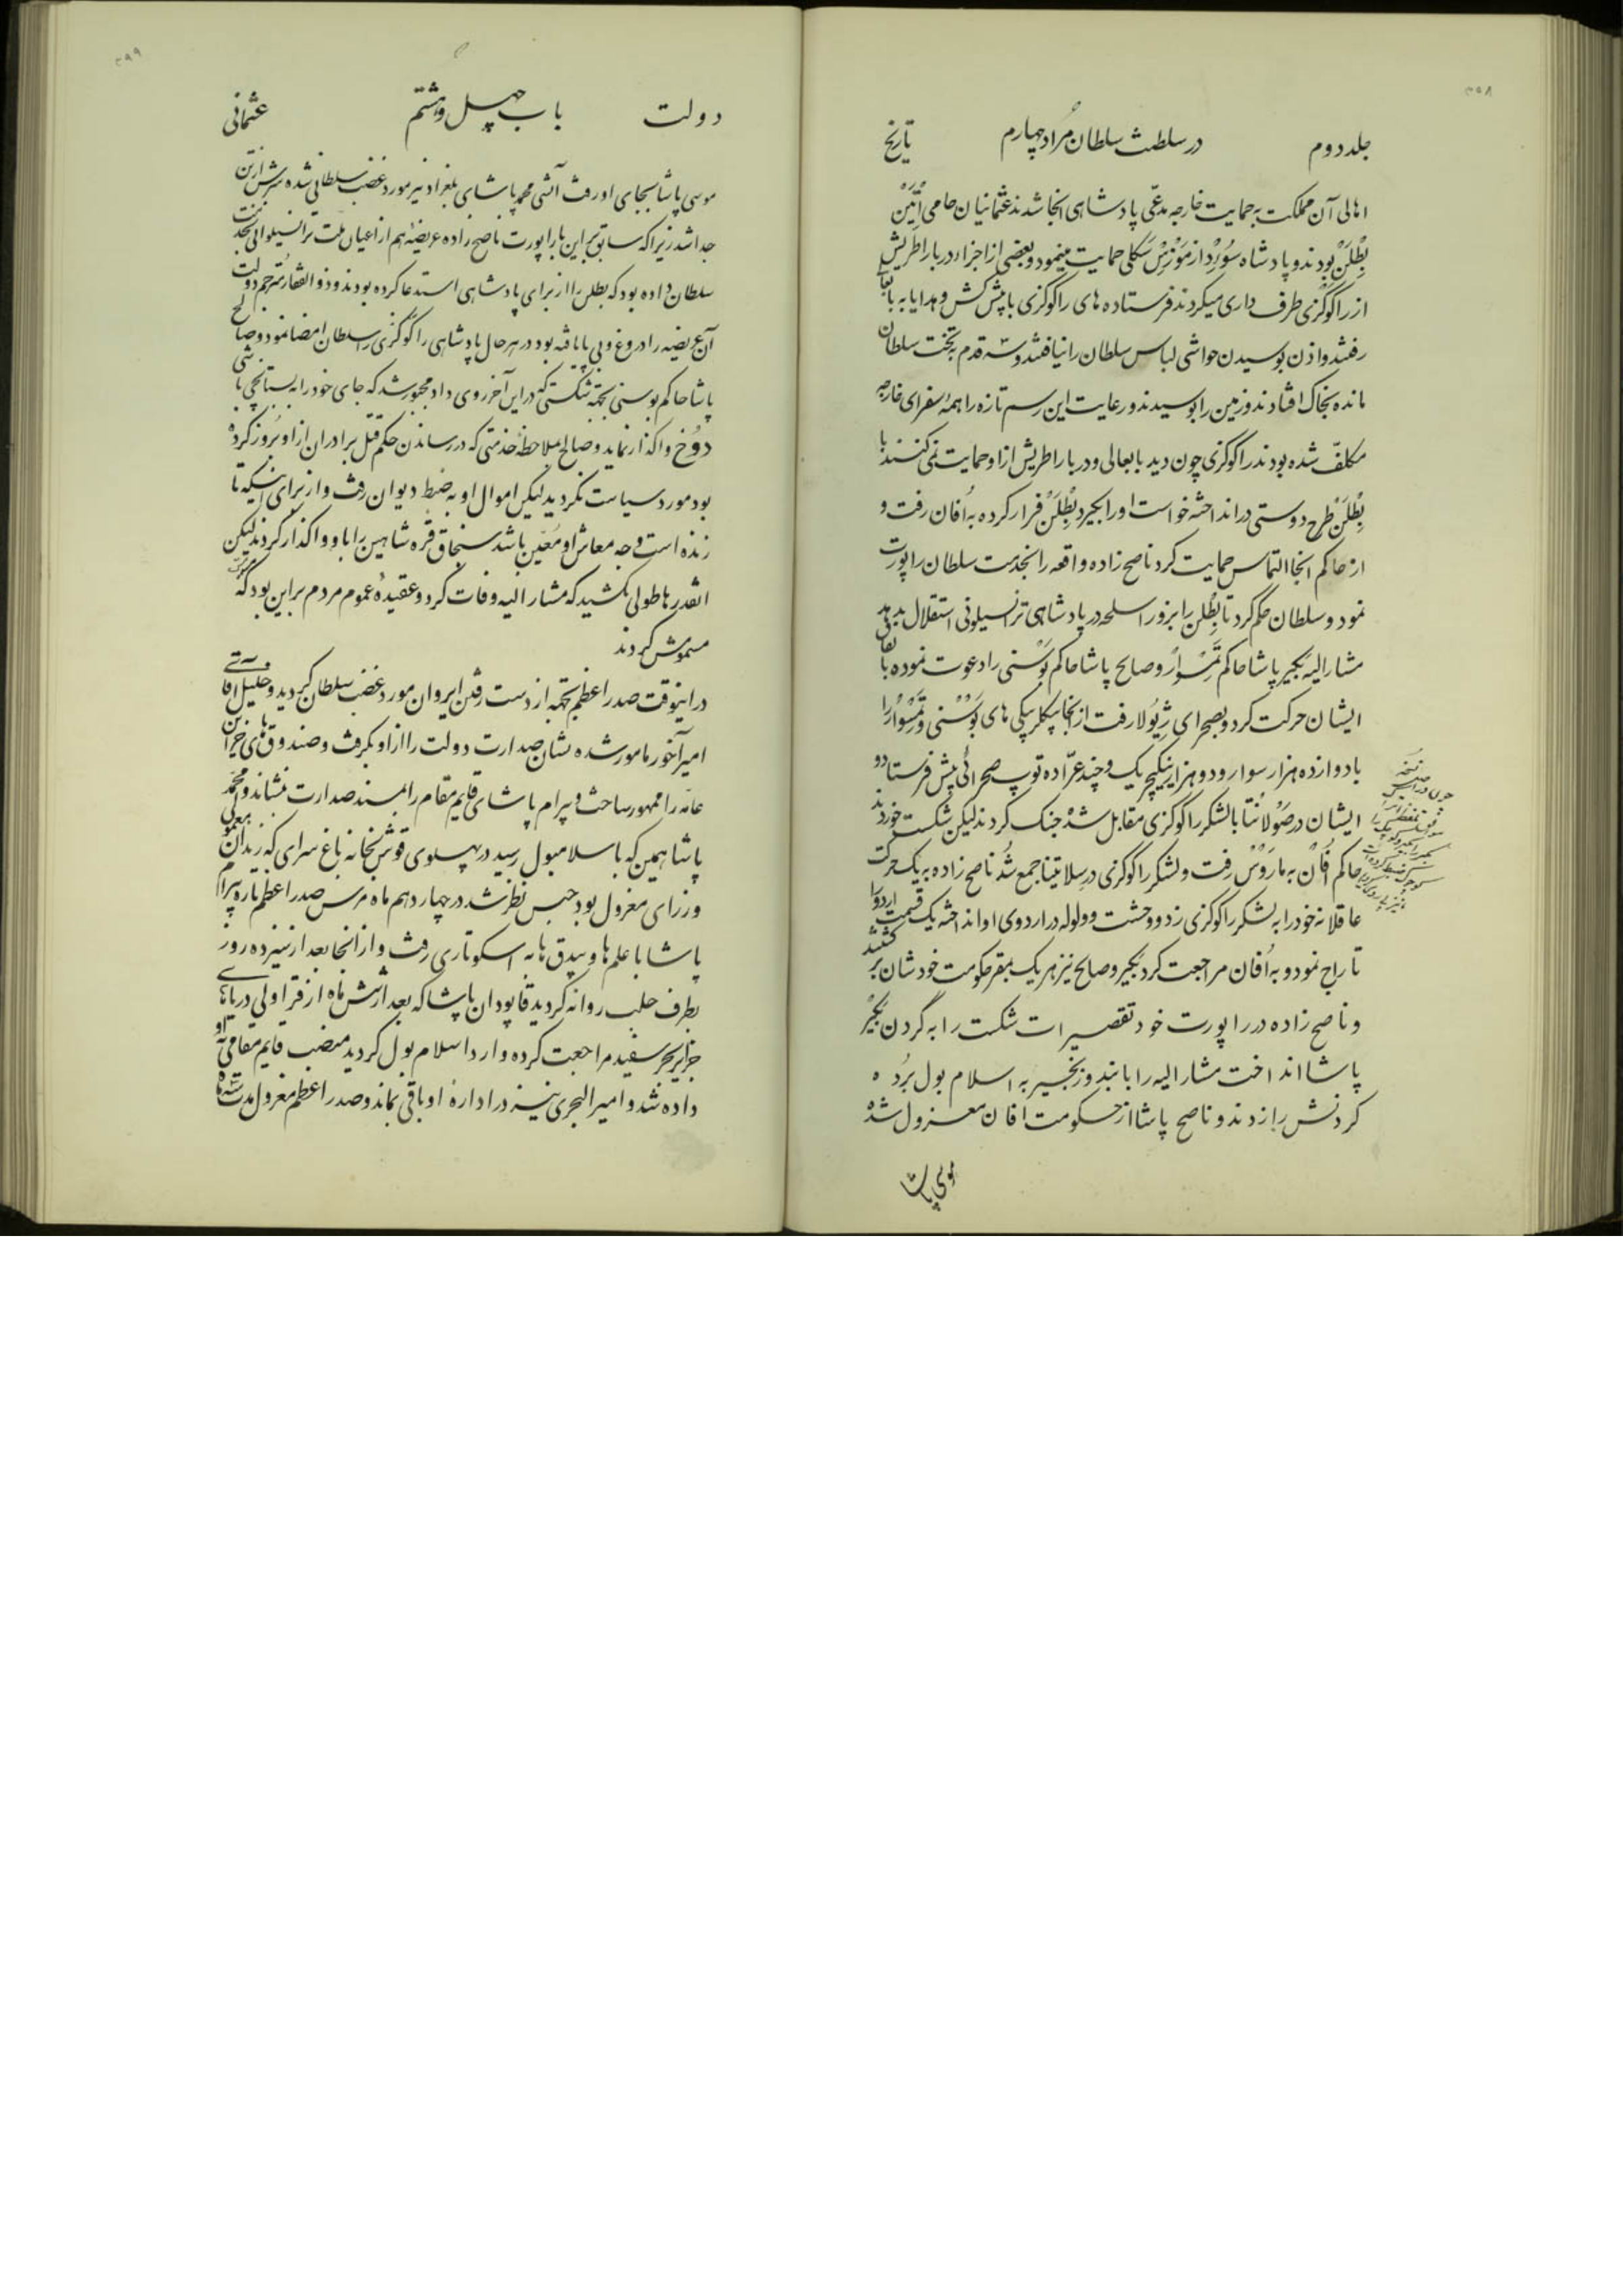 ۳۵۸
جلد دوم در سلطنت سلطان مراد چهارم تاریخ
اهالی آن مملکت به حمایت خارجه مدعی پادشاهی انجا شدند عثمانیان حامی اتین
بطلن بودند و پادشاه سورد از مورس سکلی حمایت مینمود و بعضی از اجزاء دربار اطریش
از راکوکزی طرف داری میکردند فرستاده های راکوکزی با پیش کش و هدایا به بابعالی
رفتند و اذن بوسیدن حواشی لباس سلطان را نیافتند و سه قدم به تخت سلطان
مانده بخاک افتادند و زمین را بوسیدند و رعایت این رسم تازه را همهٔ سفرای خارجه
مکلف شده بودند راکوکزی چون دید بابعالی و دربار اطریش از او حمایت نمی کنند با
بطلن طرح دوستی در انداخته خواست او را بگیرد بطلن فرار کرده به افان رفت و
از حاکم انجا التماس حمایت کرد ناصح زاده واقعه را بخدمت سلطان راپورت
نمود و سلطان حکم کرد تا بطلن را بزور اسلحه در پادشاهی ترانسیلوانی استقلال بدهد
مشار الیه بکیر پاشا حاکم تمسوار و صالح پاشا حاکم بوسنی را دعوت نموده باتفاق
ایشان حرکت کرد و بصحرای ژیولا رفت از انجا بیکلر بیکی های بوسنی و تمسوار را
با دوازده هزار سوار و دو هزار ینیکچریک و چند عراده توپ صحرائی پیش فرستاد و
ایشان در صولانتا با لشکر راکوکزی مقابل شده جنک کردند لیکن شکست خوردند
حاکم افان به ماروس رفت و لشکر راکوکزی در سلاتینا جمع شد ناصح زاده به یک حرکت
عاقلانه خود را به لشکر راکوکزی زد و وحشت و ولوله در اردوی او انداخته یک قسمت اردو را
تاراج نمود و به افان مراجعت کرد بکیر و صالح نیز هر یک بمقر حکومت خودشان بر کشتند
و ناصح زاده در راپورت خود تقصیرات شکست را به گردن بکیر
پاشا انداخت مشار الیه را با بند و زنجیر به اسلام بول برده
کردنش را زدند و ناصح پاشا از حکومت افان معزول شده
موسی پاشا
۳۵۹
دولت باب چهل و هشتم عثمانی
موسی پاشا بجای او رفت آتشی محمد پاشای بلغراد نیز مورد غضب سلطانی شده سرش از تن
جدا شد زیرا که سابق بر این با راپورت ناصح زاده عریضهٔ هم از اعیان ملت ترانسیلوانی بخدمت
سلطان داده بود که بطلن را از برای پادشاهی استدعا کرده بودند و ذو الفقار مترجم دولت
آن عریضه را دروغ و بی پا یافته بود در هر حال پادشاهی راکوکزی را سلطان امضا نمود و صالح
پاشا حاکم بوسنی بجهة شکستی که در این آخر روی داد مجبور شد که جای خود را به بستانچی باشی
دوخ واکذار نماید و صالح بملاحظه خدمتی که در رساندن حکم قتل برادران از او بروز کرده
بود مورد سیاست نکردید لیکن اموال او به ضبط دیوان رفت و از برای اینکه تا
زنده است وجه معاش او معین باشد سنجاق قره شاهین را باو واکذار کردند لیکن
انقدرها طولی نکشید که مشار الیه وفات کرد و عقیدهٔ عموم مردم بر این بود که
مسمومش کردند
در اینوقت صدر اعظم بجهة از دست رفتن ایروان مورد غضب سلطان کردید و خلیل اقای
امیر آخور مامور شده نشان صدارت دولت را از او بکرفت و صندوق های خزاین
عامه را ممهور ساخت و بیرام پاشای قایم مقام را بمسند صدارت نشاند و محمد
پاشا همین که باسلامبول رسید در پهلوی قوش خانه باغ سرای که زندان
وزرای معزول بود حبس نظر شد در چهاردهم ماه مرس صدر اعظم تازه بیرام
پاشا با علم ها و بیدق ها به اسکوتاری رفت و از انجا بعد از سیزده روز
بطرف حلب روانه کردید قاپودان پاشا که بعد از شش ماه از قراولی دریاهای
جزایر بحر سفید مراجعت کرده وارد اسلام بول کردید منصب قایم مقامی به او
داده شد و امیر البحری نیز در ادارهٔ او باقی بماند و صدر اعظم معزول مدت